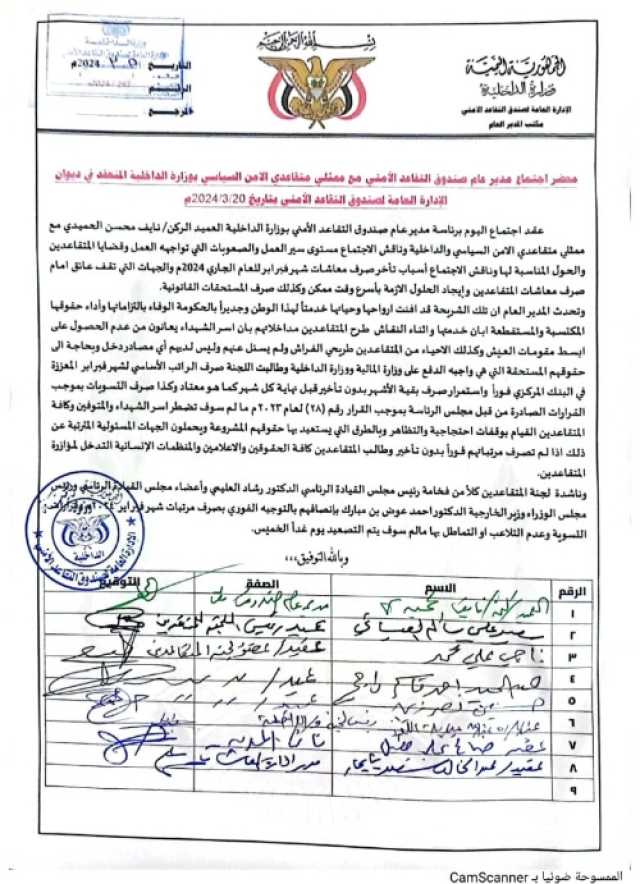 بسم الله الرحمن الرحيم
الجمهورية اليمنية
وزارة الداخلية
الإدارة العامة لصندوق التقاعد الأمني
مكتب المدير العام
التاريخ
2024م
الرقم
المرجع
محضر اجتماع مدير عام صندوق التقاعد الأمني مع ممثلي متقاعدي الامن السياسي بوزارة الداخلية المنعقد في ديوان
الإدارة العامة لصندوق التقاعد الأمني بتاريخ 2024/3/20م
عقد اجتماع اليوم برئاسة مدير عام صندوق التقاعد الأمني بوزارة الداخلية العميد الركن/ نايف محسن الحميدي مع
ممثلي متقاعدي الامن السياسي والداخلية وناقش الاجتماع مستوى سير العمل والصعوبات التي تواجهه العمل وقضايا المتقاعدين
والحول المناسبة لها وناقش الاجتماع أسباب تأخر صرف معاشات شهر فبراير للعام الجاري 2024م والجهات التي تقف عائق امام
صرف معاشات المتقاعدين وإيجاد الحلول الازمة بأسرع وقت ممكن وكذلك صرف المستحقات القانونية.
وتحدث المدير العام ان تلك الشريحة قد افنت ارواحها وحياتها خدمتاً لهذا الوطن وجديراً بالحكومة الوفاء بالتزاماتها وأداء حقوقها
المكتسبة والمستقطعة ابان خدمتها و اثناء النقاش طرح المتقاعدين مداخلاتهم بان اسر الشهداء يعانون من عدم الحصول على
ابسط مقومات العيش وكذلك الاحياء من المتقاعدين طريحي الفراش ولم يسئل عنهم وليس لديهم أي مصادر دخل وبحاجة الى
حقوقهم المستحقة التي هي واجبه الدفع على وزارة المالية ووزارة الداخلية وطالبت اللجنة صرف الراتب الأساسي لشهر فبراير المعززة
في البنك المركزي فوراً واستمرار صرف بقية الأشهر بدون تأخير قبل نهاية كل شهر كما هو معتاد وكذا صرف التسويات بموجب
القرارات الصادرة من قبل مجلس الرئاسة بموجب القرار رقم (٢٨) لعام ٢٠٢٣م ما لم سوف تضطر اسر الشهداء والمتوفين وكافة
المتقاعدين القيام بوقفات احتجاجية والتظاهر وبالطرق التي يستعيد بها حقوقهم المشروعة ويحملون الجهات المسئولية المترتبة عن
ذلك اذا لم تصرف مرتباتهم فوراً بدون تأخير وطالب المتقاعدين كافة الحقوقين والاعلامين والمنظمات الإنسانية التدخل لمؤازرة
المتقاعدين.
وناشدة لجنة المتقاعدين كلاً من فخامة رئيس مجلس القيادة الرئاسي الدكتور رشاد العليمي وأعضاء مجلس القيادة الرئاسي ورئيس
مجلس الوزراء وزير الخارجية الدكتور احمد عوض بن مبارك بإنصافهم بالتوجيه الفوري بصرف مرتبات شهر فبراير
التسوية وعدم التلاعب او التماطل بها مالم سوف يتم التصعيد يوم غداً الخميس.
وبالله التوفيق،،،
الرقم الاسم الصفة التوقيع
١
٢
٣ ناجي علي محمد
٤
٥
٦
٧
٨
٩
الممسوحة ضوئيا بـ CamScanner